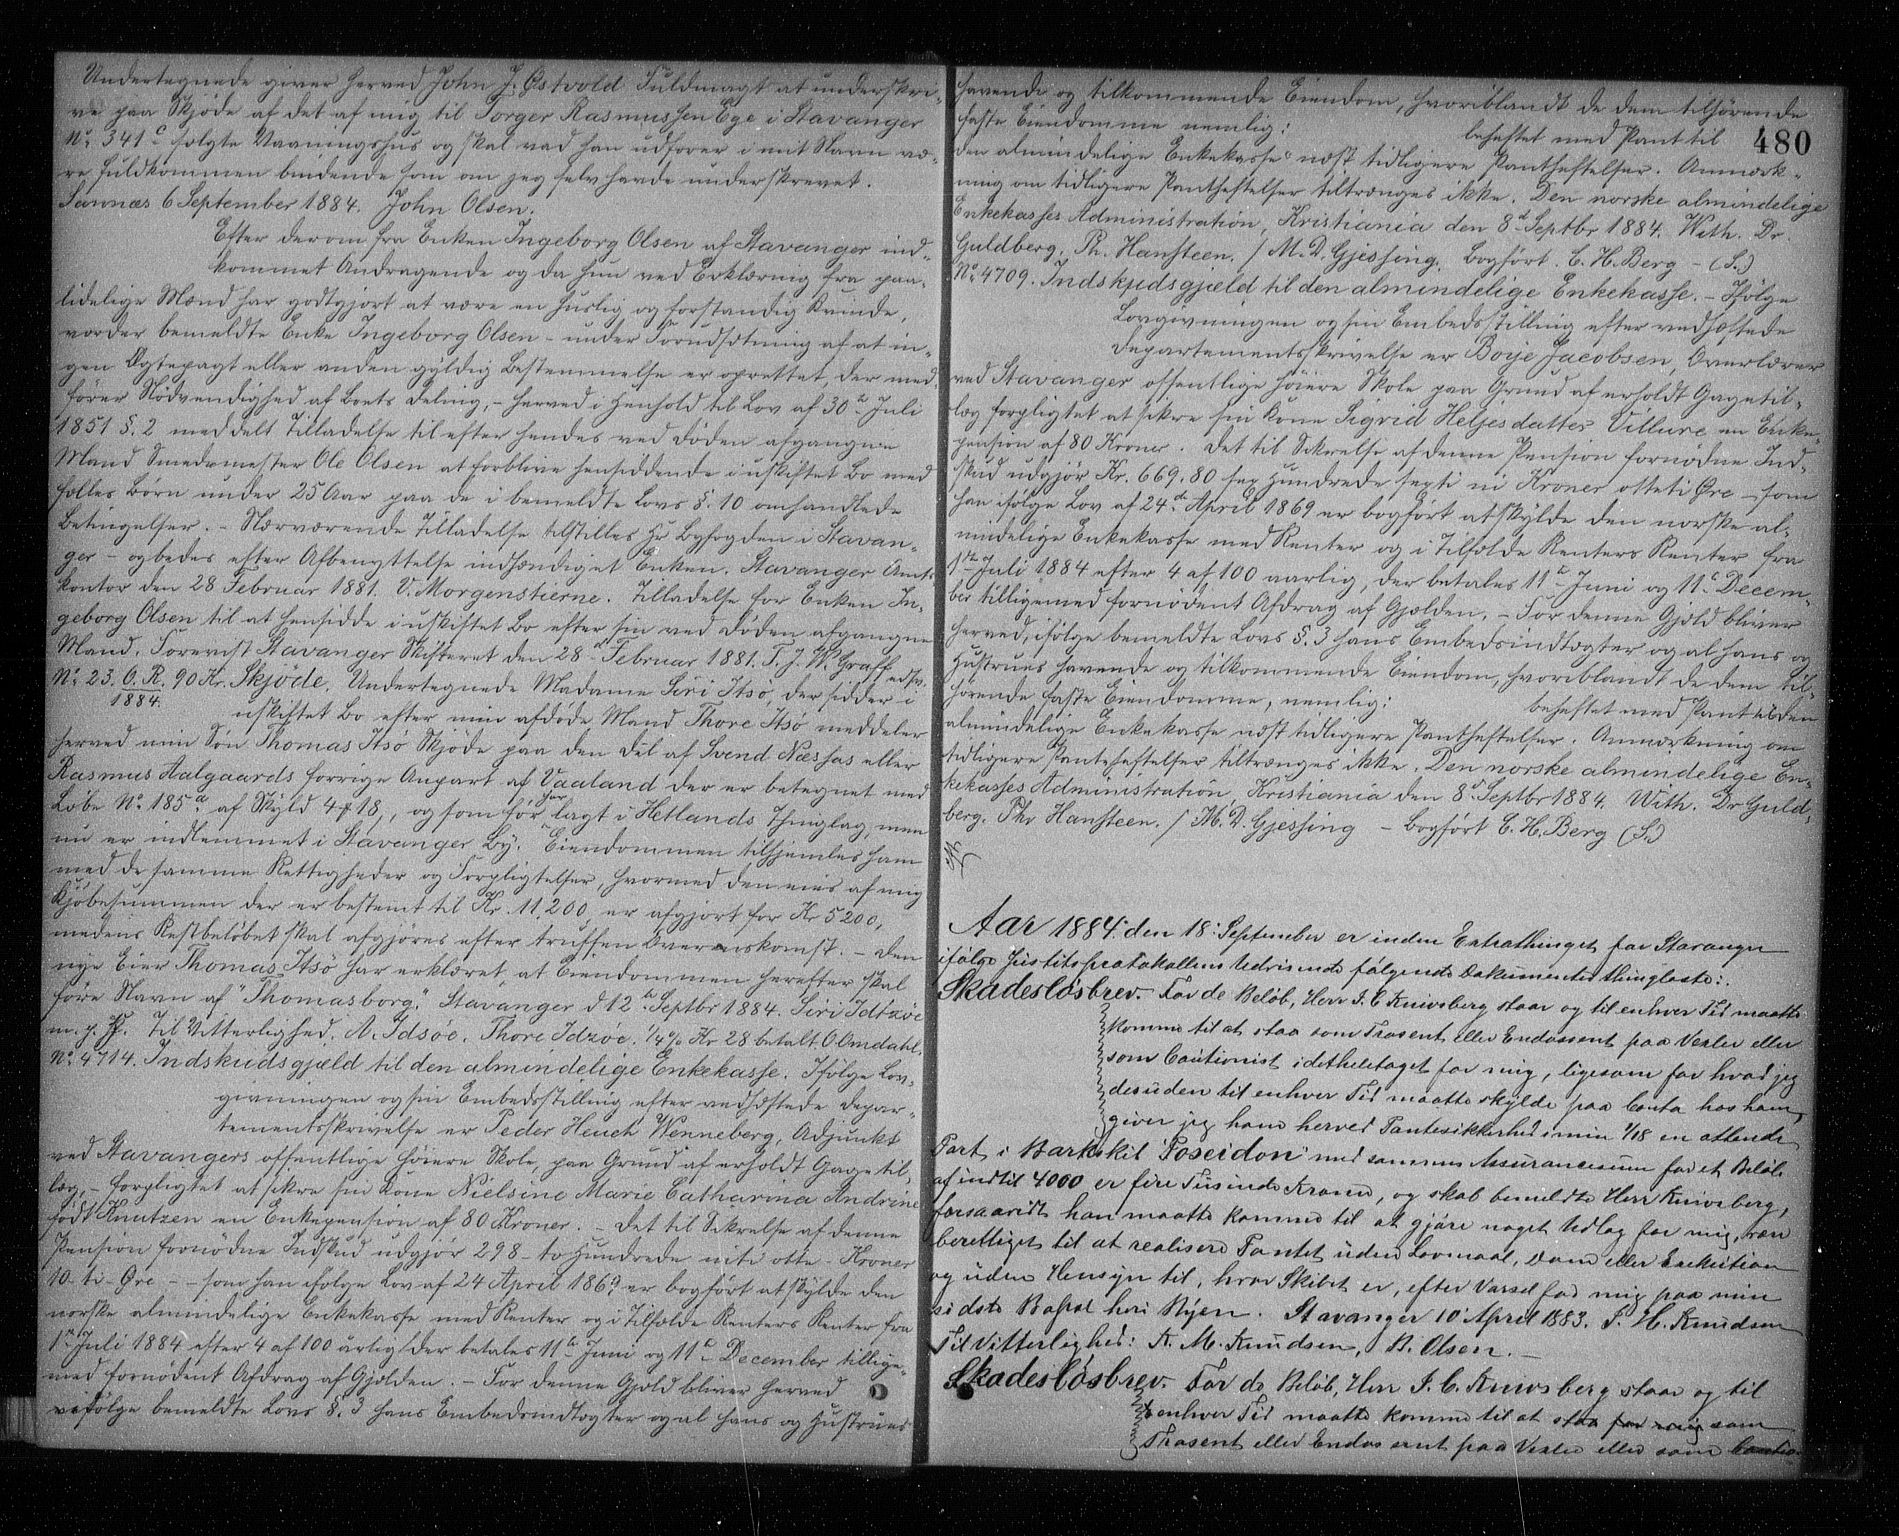 Undertegnede giver herved John J. Østvold Fuldmagt at underskri-
ve paa Skjøde af det af mig til Torger Rasmussen Ege i Stavanger
No 341c solgte Vaaningshus og skal vad han udfører i mit Navn væ-
re fuldkommen bindende som om jeg selv havde underskrevet.
Sannæs 6 September 1884. John Olsen.
Efter derom fra Enken Ingeborg Olsen af Stavanger ind-
kommet Andragende og da hun ved Erklæring fra paa-
lidelige Mænd har godtgjort at være en huslig og forstandig Kvinde,
vorder bemeldte Enke Ingeborg Olsen - under Forudsætning af at in-
gen Ægtepagt eller anden gyldig Bestemmelse er oprettet, der med-
fører Nødvendighed af Boets Deling, - herved i Henhold til Lov af 30te Juli
1851 §. 2 meddelt Tilladelse til efter hendes ved Døden afgangne
Mand Smedemester Ole Olsen at forblive hensiddende i uskiftet Bo med
fælles Børn under 25 Aar paa de i bemeldte Lovs §. 10 omhandlede
Betingelser. - Nærværende Tilladelse tilstilles Hr Byfogden i Stavan-
ger - og bedes efter Afbenyttelse indhændiget Enken. Stavanger Amts
kontor den 28 Februar 1881. V. Morgenstierne. Tilladelse for Enken In-
geborg Olsen til at hensidde i uskiftet Bo efter sin ved Døden afgangne
Mand. Forevist Stavanger Skifteret den 28d Februar 1881. T. J. W. Graff edsv.
No 23. O. R. 90 Kr. Skjøde. Undertegnede Madame Siri Itsö, der sidder i
1884. uskiftet Bo efter min afdøde Mand Thore Itsö meddeler
herved min Søn Thomas Itsö Skjøde paa den Del af Svend Næshas eller
Rasmus Aalgaards forrige Anpart af Vaaland der er betegnet med
Løbe No 185a af Skyld 4 18, og som før har lagt i Hetlands Thinglag, men
nu er indlemmet i Stavanger By. Eiendommen tilhjemles ham
med de samme Rettigheder og Forpligtelser, hvormed den eies af mig
Kjøbesummen der er bestemt til Kr. 11,200, er afgjort for Kr 5200,
medens Restbeløbet skal afgjøres efter truffen Overenskomst. - Den
nye Eier Thomas Itsö har erklæret, at Eiendommen herefter skal
føre Navn af "Thomasborg". Stavanger d 12te Septbr 1884. Siri Idtzöe
m. p. P. Til Vitterlighed: A. Idsöe. Thore Idzöe. 1/4 % Kr 28 betalt O Omdahl.
No 4714. Indskudsgjæld til den almindelige Enkekasse. Ifølge Lov-
givningen og sin Embedsstilling efter vedhæftede Depar-
tementsskrivelse er Peder Heuch Wenneberg, Adjunkt
ved Stavangers offentlige høiere Skole, paa Grund af erholdt Gagetil-
læg, - forpligtet at sikre sin Kone Nielsine Marie Catharina Andrine
født Knutzen en Enkepension af 80 Kroner. - Det til Sikrelse af denne
Pension fornødne Indskud udgjør 298 - to hundrede niti otte - Kroner
10 - ti - Øre - - som han ifølge Lov af 24 April 1869 er bogført at skylde den
norske almindelige Enkekasse med Renter og i Tilfælde Renters Renter fra
1ste Juli 1884 efter 4 af 100 aarlig der betales 11te Juni og 11te December tillige-
med fornødent Afdrag af Gjælden. - For denne Gjæld bliver herved
ifølge bemeldte Lovs §. 3 hans Embedsindtægter og al hans og Hustrues
havende og tilkommende Eiendom, hvoriblandt de dem tilhørende
faste Eiendomme nemlig: beheftet med Pant til
480
den almindelige Enkekasse næst tidligere Pantheftelser. Anmærk-
ning om tidligere Pantheftelser tiltrænges ikke. Den norske almindelige
Enkekasses Administration, Kristiania den 8d Septbr 1884. With. Dr.
Guldberg. Ph. Hansteen. / M. D. Gjessing. Bogført. C. H. Berg - (S.)
No 4709. Indskudsgjæld til den almindelige Enkekasse. - Ifølge
Lovgivningen og sin Embedsstilling efter vedhæftede
Departementsskrivelse er Børje Jacobsen, Overlærer
ved Stavanger offentlige høiere Skole paa Grund af erholdt Gagetil-
læg forpligtet at sikre sin Kone Sigrid Heljesdatter Villure en Enke-
pension af 80 Kroner. Det til Sikrelse af denne Pension fornødne Ind-
skud udgjør Kr. 669.80 sex hundrede sexti ni Kroner otteti Øre - som
han ifølge Lov af 24de April 1869 er bogført at skylde den norske al-
mindelige Enkekasse med Renter og i Tilfælde Renters Renter fra
1ste Juli 1884 efter 4 af 100 aarlig, der betales 11te Juni og 11te Decem-
ber tilligemed fornødent Afdrag af Gjælden. - For denne Gjæld bliver
herved, ifølge bemeldte Lovs §. 3 hans Embedsindtægter og al hans og
Hustrues havende og tilkommende Eiendom, hvoriblandt de dem til-
hørende faste Eiendomme, nemlig: beheftet med Pant til den
almindelige Enkekasse næst tidligere Pantheftelser. Anmærkning om
tidligere Pantheftelser tiltrænges ikke. Den norske almindelige En-
kekasses Administration, Kristiania den 8d Septbr 1884. With. Dr Guld-
berg. Ph. Hansteen. / M. D. Gjessing - Bogført C. H. Berg (S.)
Aar 1884 den 18 September er inden Extrathinget for Stavanger
ifølge Justitsprotokollens Udvisende følgende Dokumenter thinglæste:
Skadesløsbrev. For de Beløb, Herr I. C. Knivsberg staar og til enhver Tid maatte
komme til at staa som Trasent eller Endossent paa Vexler eller
som Cautionist i detheletaget for mig, ligesom for hvad jeg
desuden til enhver Tid maatte skylde paa Conto hos ham,
giver jeg ham herved Pantesikkerhed i min 1/18 en attende
Part i Barkskib "Poseidon" med sammes Assurancesum for et Beløb
af indtil 4000 er fire Tusinde Kroner, og skal bemeldte Herr Knivsberg,
forsaavidt han maatte komme til at gjøre noget Udlæg for mig, være
berettiget til at realisere Pantet uden Lovmaal, Dom eller Exekution
og uden Hensyn til, hvor Skibet er, efter Varsel for mig paa min
sidste Bopæl her i Byen. Stavanger 10 April 1883. P. H. Knudsen
Til Vitterlighed: K. M. Knudsen, B. Olsen. -
Skadesløsbrev. For de Beløb, Herr I. C. Knivsberg staar og til
enhver Tid maatte komme til at staa for mig som
Trasent eller Endossent paa Vexler eller som Cautio-